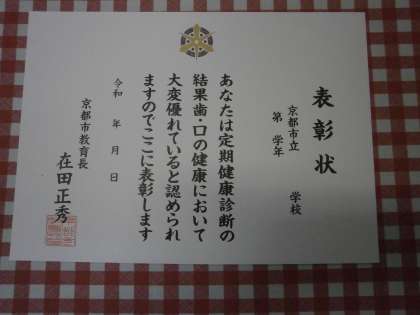 表彰状
京都市立 学校
第 学年
あなたは定期健康診断の
結果歯・口の健康において
大変優れていると認められ
ますのでここに表彰します
令和 年 月 日
京都市教育長
在田正秀